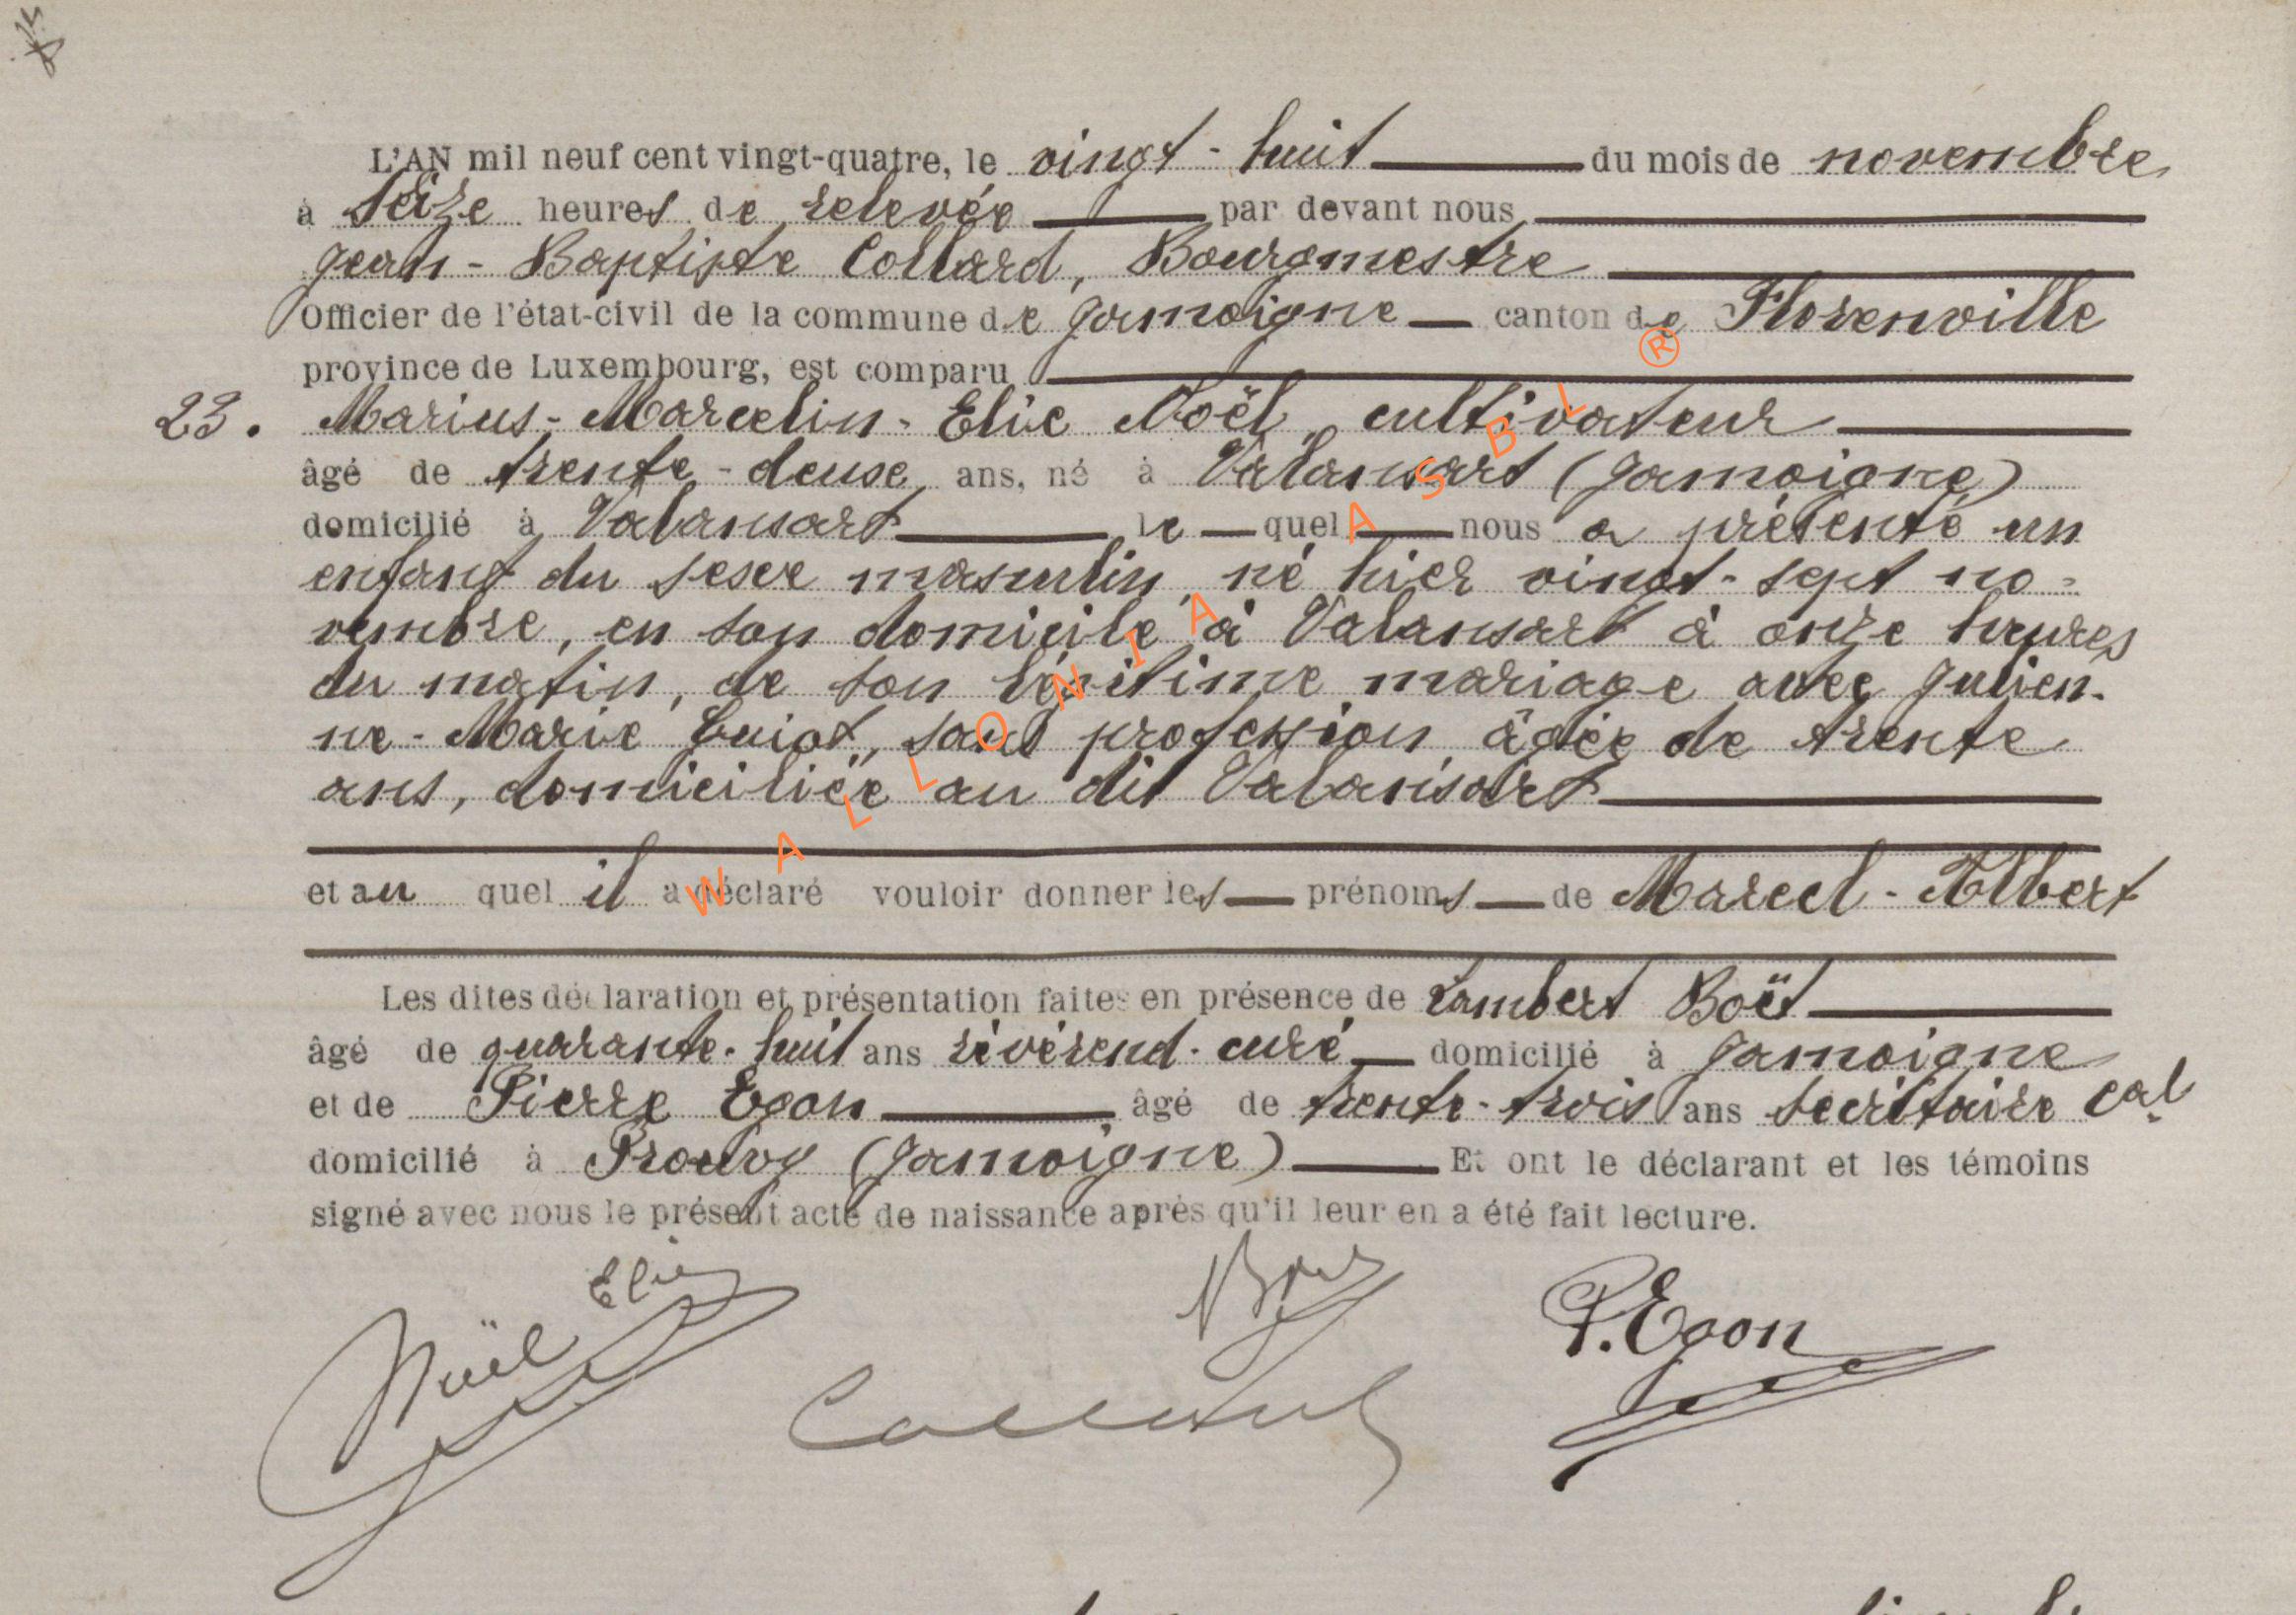 L'AN mil neuf cent vingt-quatre, le vingt-huit du mois de novembre
à seize heures de relevée par devant nous
Jean-Baptiste Collard, Bourgmestre
Officier de l'état-civil de la commune de Jamoigne canton de Florenville
province de Luxembourg, est comparu
23. Marius-Marcelin-Elie Noël, cultivateur
âgé de trente-deux ans, né à Valansart (Jamoigne)
domicilié à Valansart lequel nous a présenté un
enfant du sexe masculin, né hier vingt-sept no=
vembre, en son domicile à Valansart à onze heures
du matin, de son légitime mariage avec Julien-
ne-Marie Guiot, sans profession, âgée de trente
ans, domiciliée au dit Valansart
et au quel il a déclaré vouloir donner les prénoms de Marcel-Albert
Les dites déclaration et présentation faites en présence de Lambert Boët
âgé de quarante-huit ans révérend-curé domicilié à Jamoigne
et de Pierre Egon, âgé de trente-trois ans secrétaire cal
domicilié à Prouvy (Jamoigne) Et ont le déclarant et les témoins
signé avec nous le présent acte de naissance après qu'il leur en a été fait lecture.
Noël Elie
P. Egon
Collard
WALLONIA ASBL ®